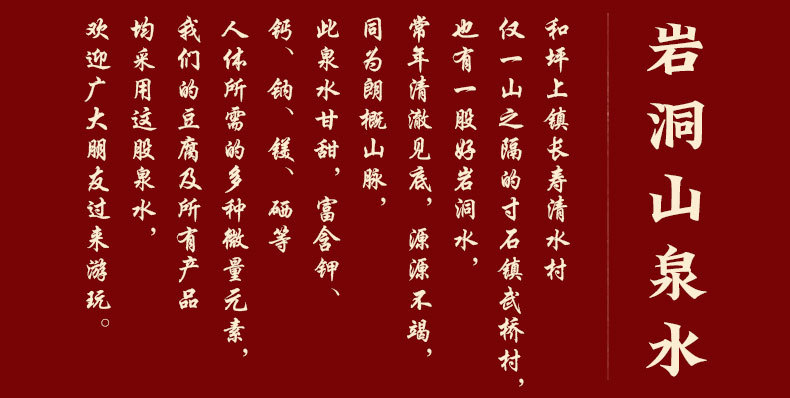 岩洞山泉水
和坪上镇长寿清水村
仅一山之隔的寸石镇武桥村，
也有一股好岩洞水，
常年清澈见底，源源不竭，
同为朗概山脉，
此泉水甘甜，富含钾、
钙、钠、镁、硒等
人体所需的多种微量元素，
我们的豆腐及所有产品
均采用这股泉水，
欢迎广大朋友过来游玩。